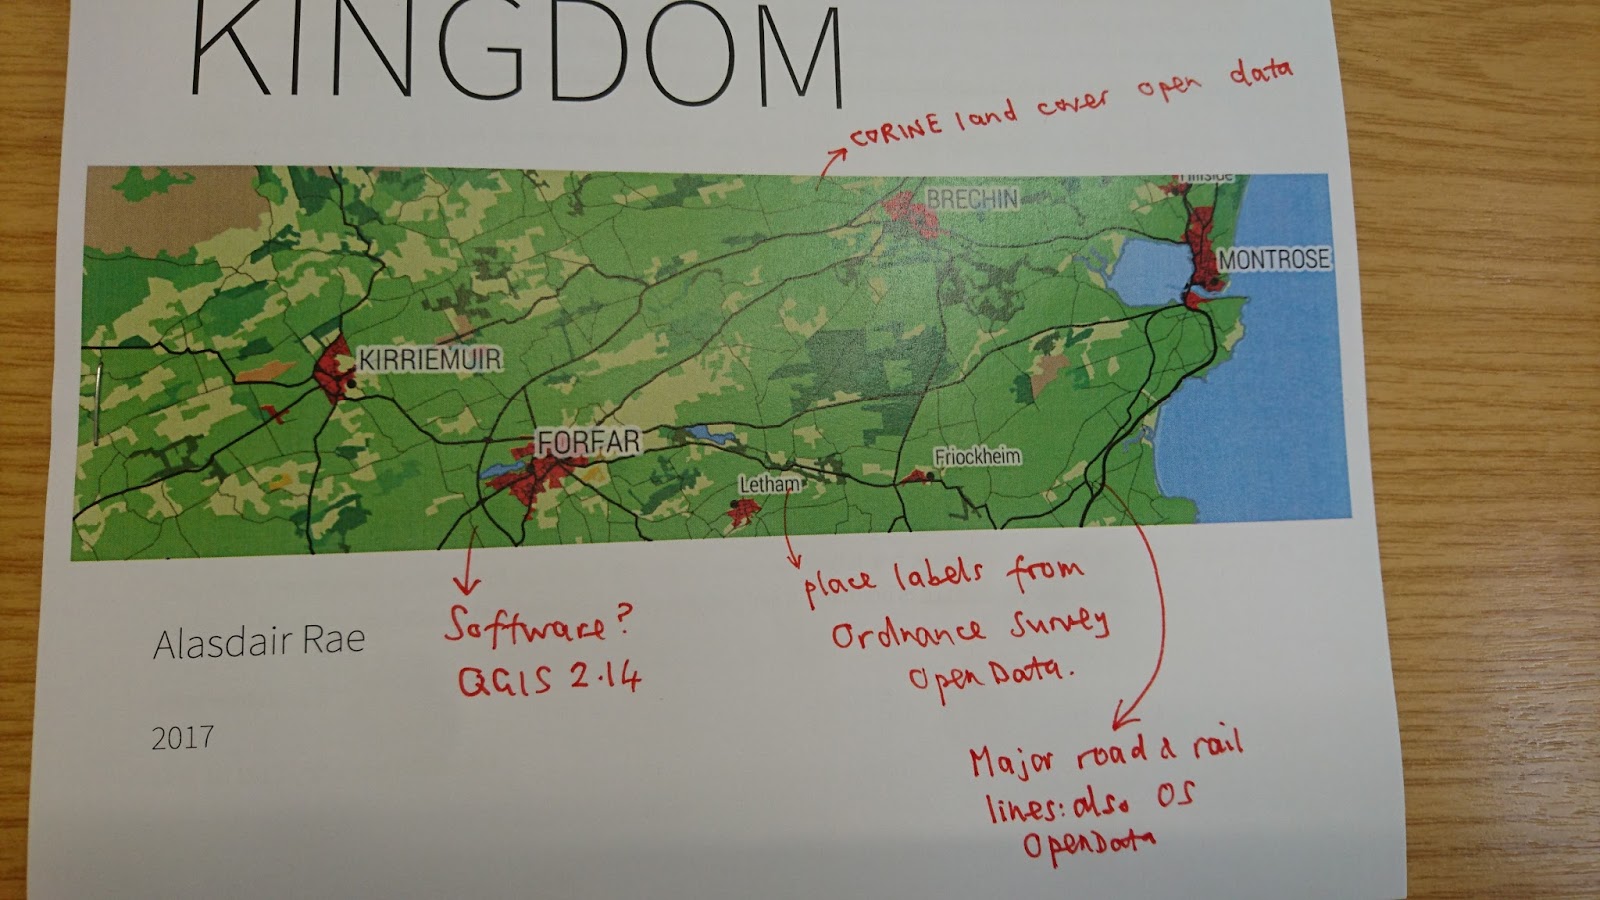 KINGDOM
CORINE land cover open data
Hillside
BRECHIN
MONTROSE
KIRRIEMUIR
FORFAR
Friockheim
Letham
Alasdair Rae
2017
Software?
QGIS 2.14
place labels from
Ordnance Survey
OpenData.
Major road & rail
lines: also OS
OpenData